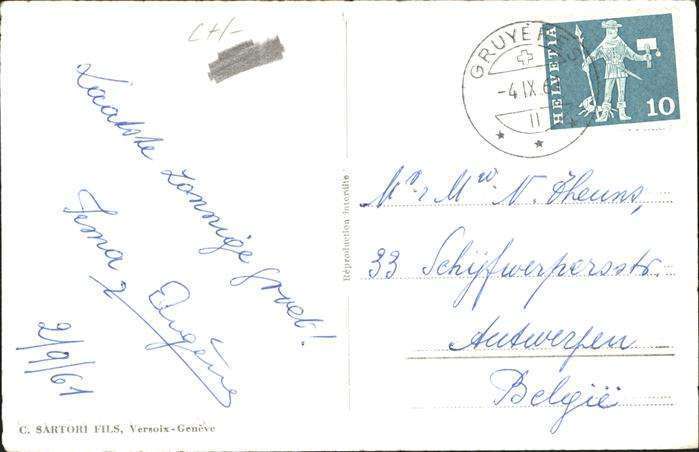 C+/-
Laatste zonnige groet!
Irma & Eugène
2/9/61
C. SARTORI FILS, Versoix-Genève
Réproduction interdite
GRUYÈRES
-4.IX.6
II
HELVETIA
10
Mr & Mw. N. Theuns,
33 Schijfwerpersstr.
Antwerpen
België